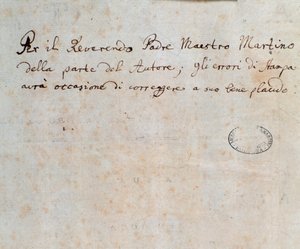 Per il Reverendo Padre Maestro Martino
della parte del Autore; gli errori di stampa
avrà occasione di correggere a suo bene placido